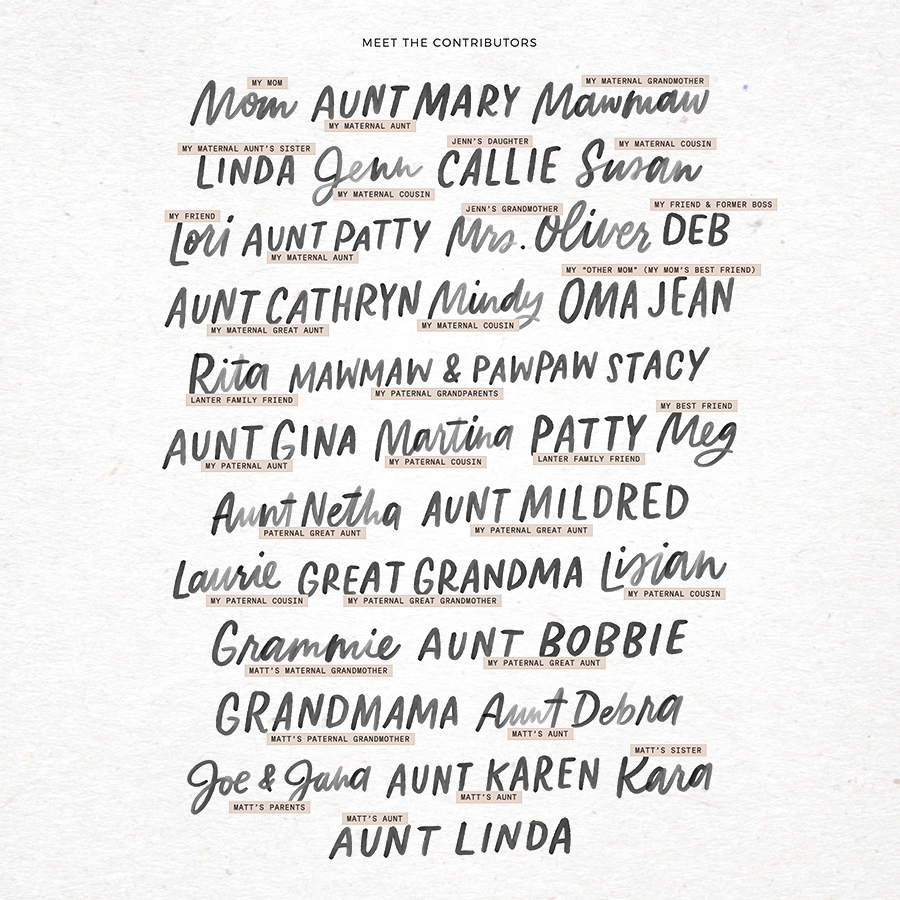 MEET THE CONTRIBUTORS
MY MOM
MY MATERNAL GRANDMOTHER
Mom AUNT MARY Mawmaw
MY MATERNAL AUNT
MY MATERNAL AUNT'S SISTER
JENN'S DAUGHTER
MY MATERNAL COUSIN
LINDA Jenn CALLIE Susan
MY MATERNAL COUSIN
MY FRIEND
JENN'S GRANDMOTHER
MY FRIEND & FORMER BOSS
Lori AUNT PATTY Mrs. Oliver DEB
MY MATERNAL AUNT
MY "OTHER MOM" (MY MOM'S BEST FRIEND)
AUNT CATHRYN Mindy OMA JEAN
MY MATERNAL GREAT AUNT
MY MATERNAL COUSIN
Rita MAWMAW & PAWPAW STACY
LANTER FAMILY FRIEND
MY PATERNAL GRANDPARENTS
MY BEST FRIEND
AUNT GINA Martina PATTY Meg
MY PATERNAL AUNT
MY PATERNAL COUSIN
LANTER FAMILY FRIEND
Aunt Netha AUNT MILDRED
PATERNAL GREAT AUNT
MY PATERNAL GREAT AUNT
Laurie GREAT GRANDMA Lisian
MY PATERNAL COUSIN
MY PATERNAL GREAT GRANDMOTHER
MY PATERNAL COUSIN
Grammie AUNT BOBBIE
MATT'S MATERNAL GRANDMOTHER
MY PATERNAL GREAT AUNT
GRANDMAMA Aunt Debra
MATT'S PATERNAL GRANDMOTHER
MATT'S AUNT
MATT'S SISTER
Joe & Jana AUNT KAREN Kara
MATT'S PARENTS
MATT'S AUNT
MATT'S AUNT
AUNT LINDA